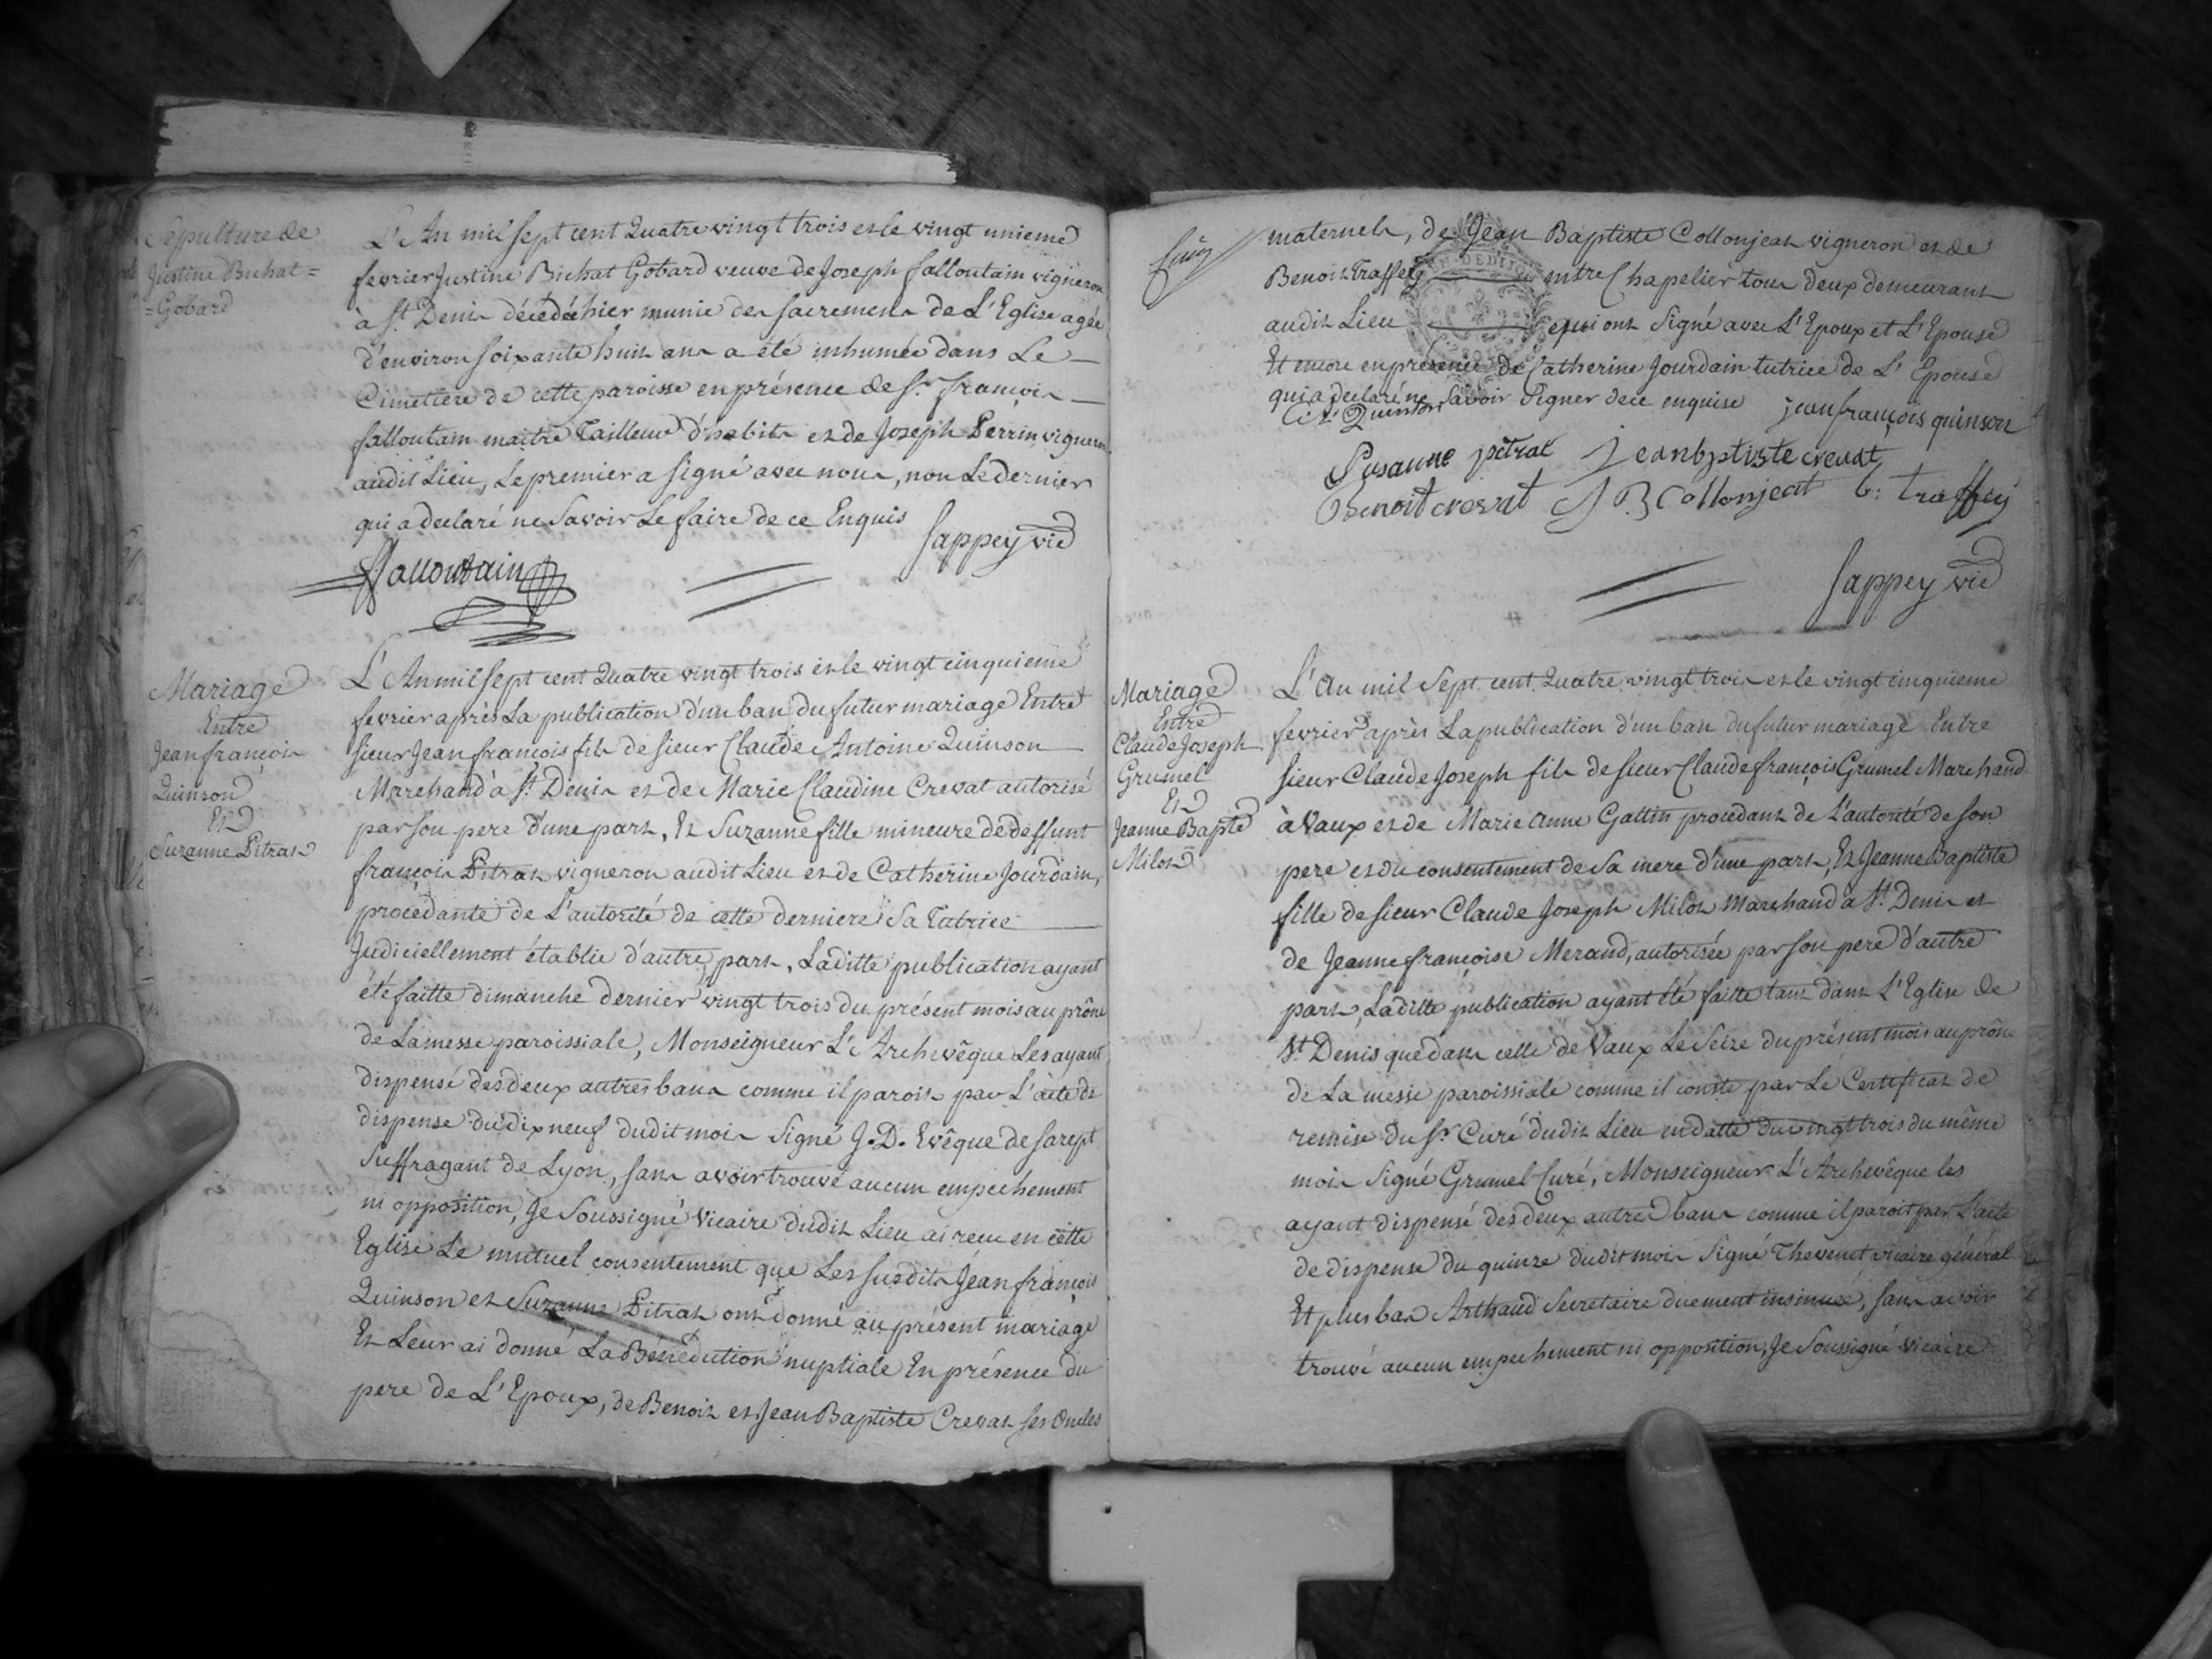 Sepulture de
Justine Bichat =
= Gobard
L'An mil sept cent Quatre vingt trois et le vingt unieme
fevrier Justine Bichat Gobard veuve de Joseph falloutain vigneron
à St. Denis décedée hier munie des sacremens de L'Eglise agée
d'environ soixante huit ans a été inhumée dans Le
Cimetiere de cette paroisse en présence de Sr. francois
falloutain maitre Tailleur d'habits et de Joseph Perrin vigneron
audit Lieu, Le premier a signé avec nous, non Le dernier
qui a declaré ne Savoir Le faire de ce Enquis
falloutain
Sappey vic
Mariage
Entre
Jean francois
Quinson
Et
Suzanne Pitrat
L'An mil sept cent Quatre vingt trois et le vingt cinquieme
fevrier après La publication d'un ban du futur mariage Entre
sieur Jean françois fils de sieur Claude Antoine Quinson
Marchand à St. Denis et de Marie Claudine Crevat autorisé
par son pere d'une part, Et Suzanne fille mineure de deffunt
françois Pitrat vigneron audit Lieu et de Catherine Jourdain,
procédante de L'autorité de cette derniere Sa Tutrice
Judiciellement établie d'autre part, Laditte publication ayant
été faitte dimanche dernier vingt trois du présent mois au prône
de La messe paroissiale, Monseigneur L'Archevêque Les ayant
dispensé des deux autres bans comme il paroit par L'acte de
dispense du dix neuf dudit mois Signé J.D. Evêque de Sarept
Suffragant de Lyon, sans avoir trouvé aucun empechement
ni opposition, Je Soussigné Vicaire dudit Lieu ai recu en cette
Eglise Le mutuel consentement que Les susdits Jean françois
Quinson et Suzanne Pitrat ont donné au présent mariage
Et Leur ai donné La Bénédiction nuptiale En présence du
pere de L'Epoux, de Benoit et Jean Baptiste Crevat ses Oncles
maternels, de Jean Baptiste Collonjeat vigneron et de
Benoit Traffey mtre Chapelier tous deux demeurant
audit Lieu qui ont Signé avec L'Epoux et L'Epouse
Et encore en présence de Catherine Jourdain tutrice de L'Epouse
qui a declaré ne Savoir Signer de ce enquise jean françois quinson
Quinson
Susanne pitrat Jean bptiste crevat
Benoit crevat J B Collonjeat b: traffey
Sappey vic
Mariage
Entre
Claude Joseph
Grumel
Et
Jeanne Bapte
Milot
L'An mil Sept cent Quatre vingt trois et le vingt cinquieme
fevrier après La publication d'un ban du futur mariage Entre
sieur Claude Joseph fils de sieur Claude françois Grumel Marchand
à Vaux et de Marie Anne Gattin procedant de L'autorité de son
pere et du consentement de Sa mere d'une part, Et Jeanne Baptiste
fille de sieur Claude Joseph Milot Marchand à St. Denis et
de Jeanne françoise Merand, autorisée par son pere d'autre
part, Laditte publication ayant été faitte tant dans L'Eglise de
St. Denis que dans celle de Vaux Le Seize du présent mois au prône
de La messe paroissiale comme il conste par Le Certificat de
remise du Sr Curé dudit Lieu en datte du vingt trois du même
mois Signé Grumel Curé, Monseigneur L'Archevêque les
ayant dispensé des deux autres bans comme il paroit par L'acte
de dispense du quinze dudit mois Signé Thevenet vicaire général
Et plus bas Arthaud Secretaire duement insinuée, sans avoir
trouvé aucun empechement ni opposition, Je Soussigné Vicaire